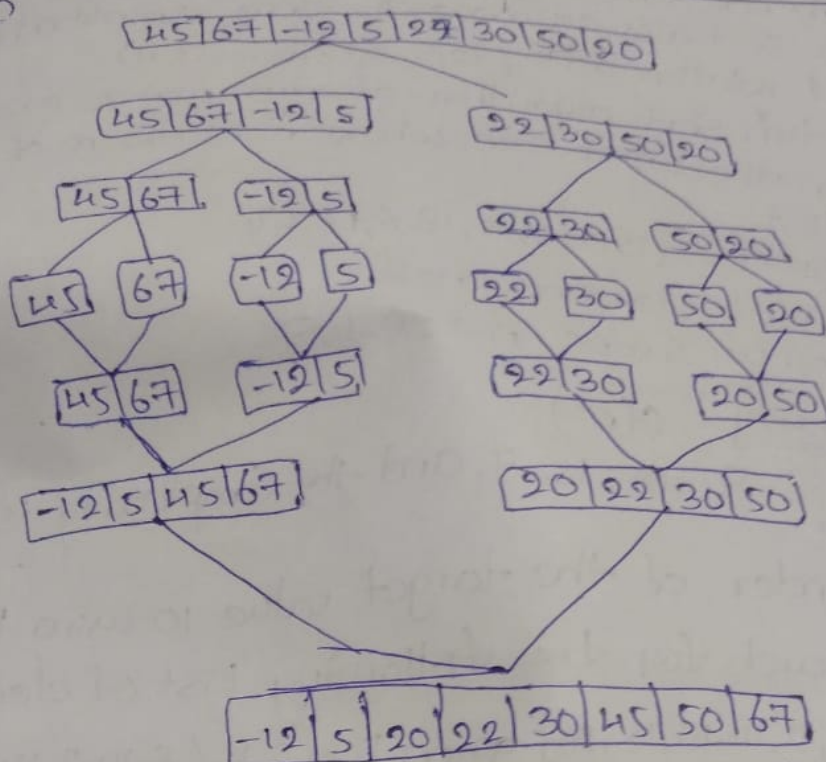 45 67 -12 5 22 30 50 20
45 67 -12 5 22 30 50 20
45 67 -12 5 22 30 50 20
45 67 -12 5 22 30 50 20
45 67 -12 5 22 30 20 50
-12 5 45 67 20 22 30 50
-12 5 20 22 30 45 50 67